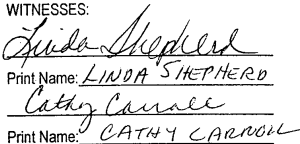 WITNESSES:
Linda Shepherd
Print Name: LINDA SHEPHERD
Cathy Carroll
Print Name: CATHY CARROLL